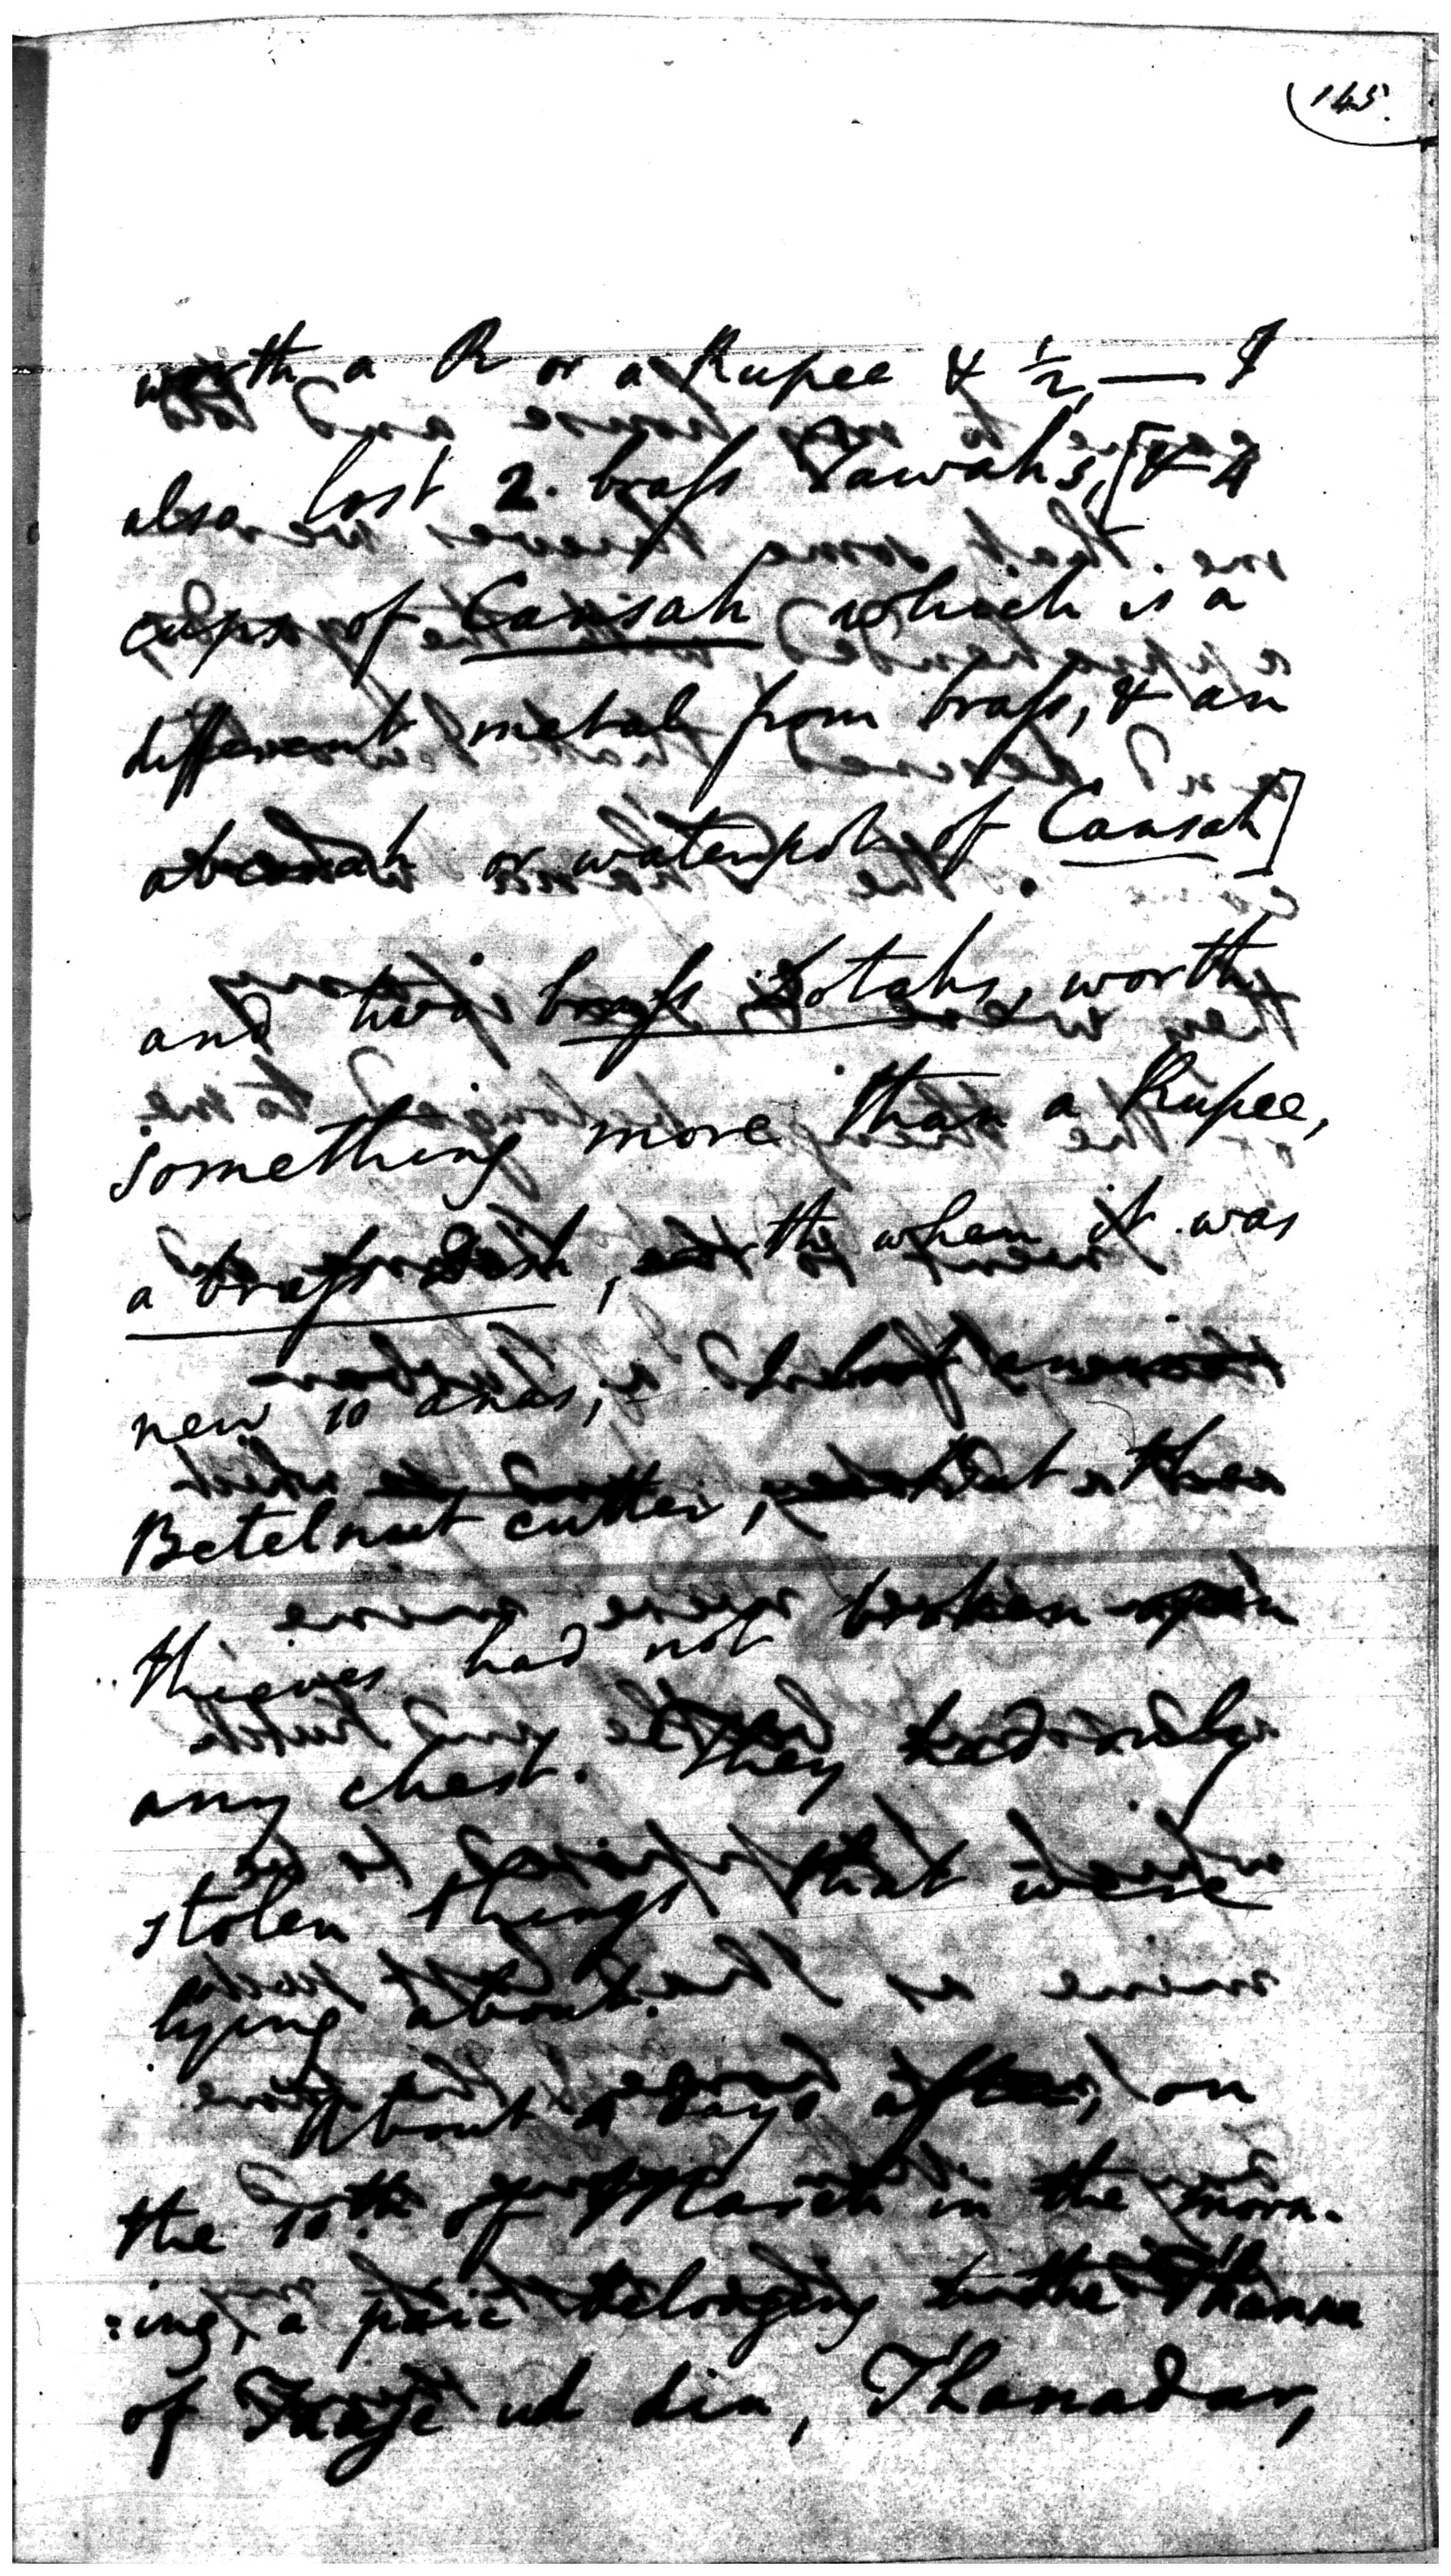 145.
worth a R or a Rupee & ½, — I
also lost 2. brass Tawahs, [& 4
cups of Cansah which is a
different metal from brass, & an
or waterpot of Cansah]
and two brass Lotahs, worth
something more than a Rupee,
a brass Dish, worth when it was
new 10 anas, a
Betelnut cutter, the
thieves had not broken open
any chest. They had only
stolen things that were
lying about.
About 4 days after, on
the 10th. of March in the morn-
:ing, a paic belonging to the Thanna
of ud din, Thanadar,